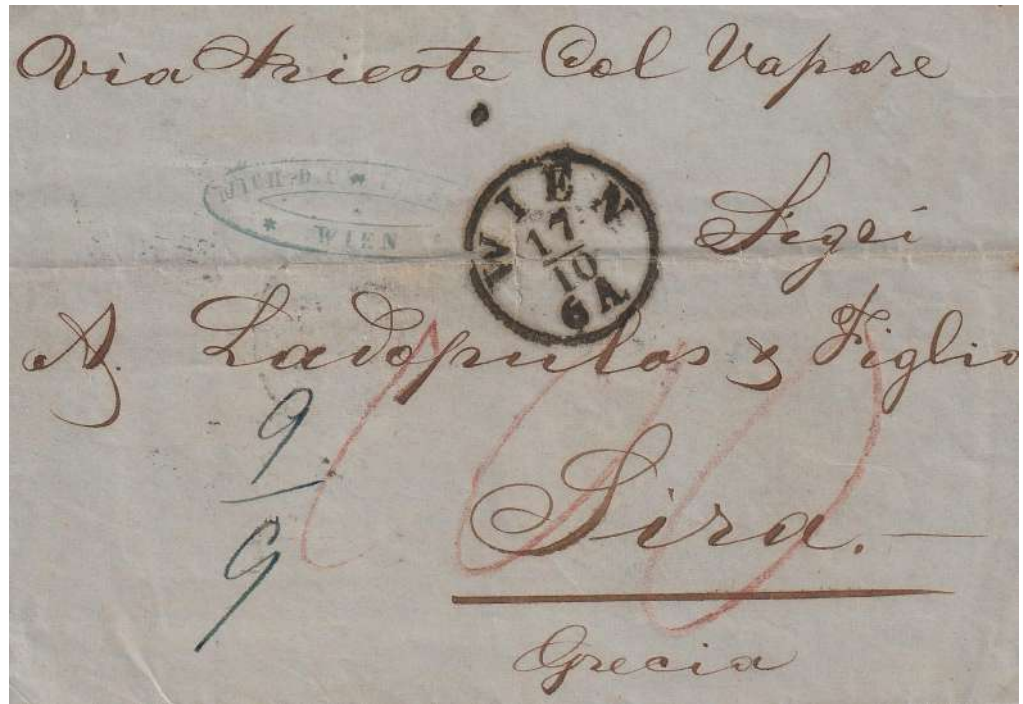 Via Trieste Col Vapore
WIEN
17
10
6 A
WIEN
Sigri
A. Ladopulos & Figlio
9
9
Sira.
Grecia